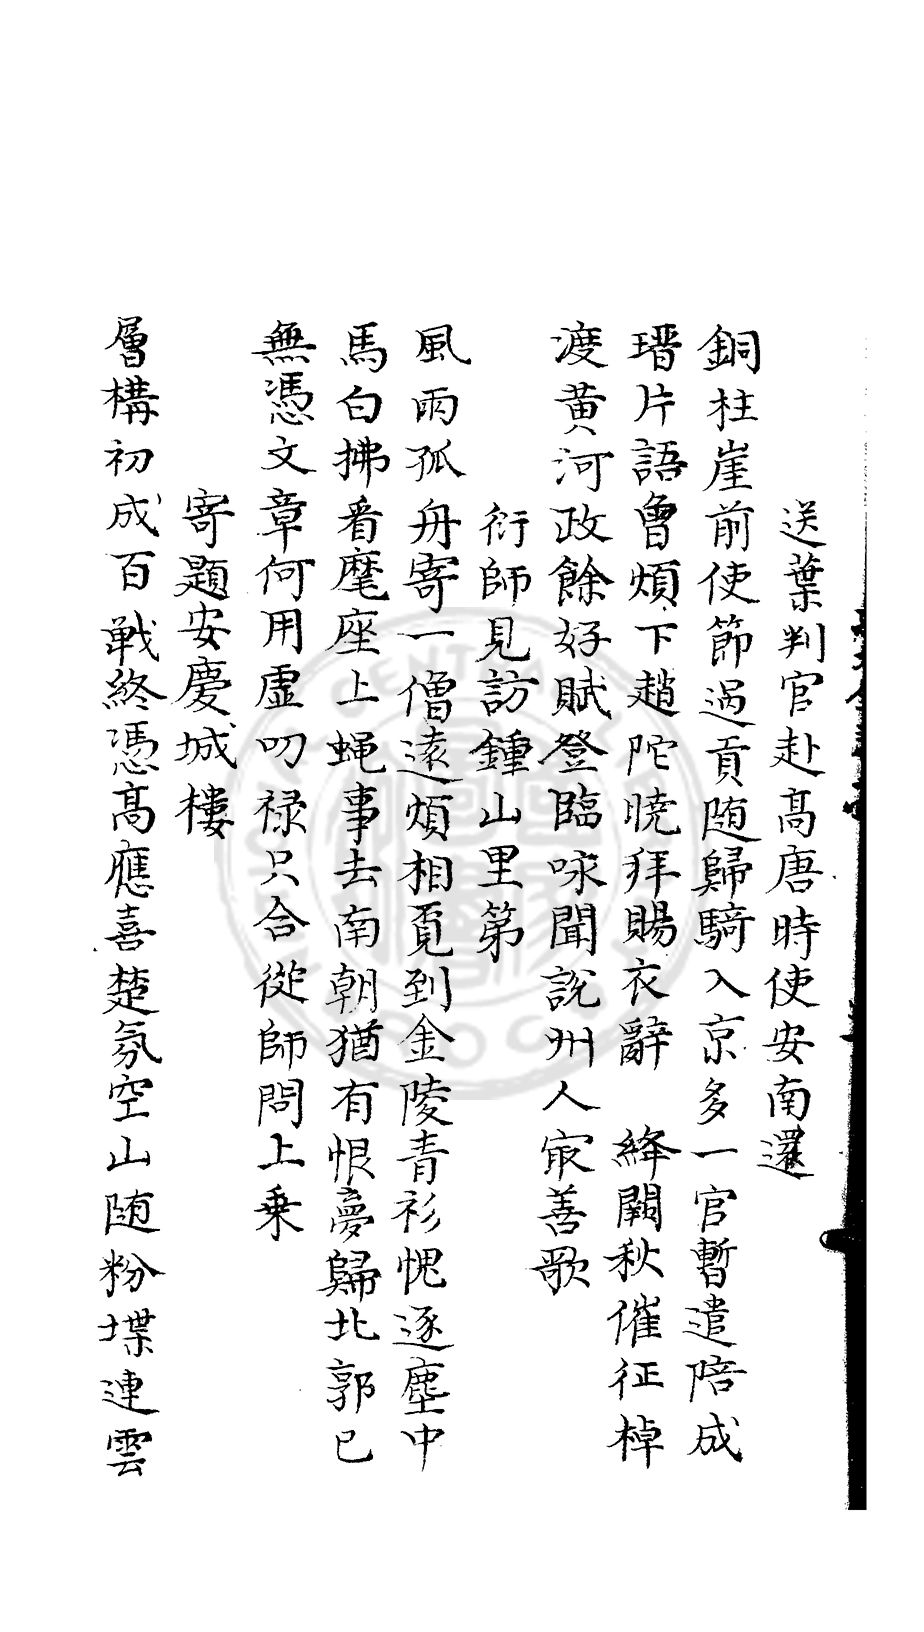 送葉判官赴高唐時使安南還
銅柱崖前使節過貢随歸騎入京多一官暫遣陪成
瑨片語曾煩下趙陀曉拜賜衣辭 絳闕秋催征棹
渡黄河政餘好賦登臨咏聞說州人㝡善歌
衍師見訪鍾山里第
風雨孤舟寄一僧遠煩相覔到金陵青衫愧逐塵中
馬白拂看麾座上蝇事去南朝猶有恨夢歸北郭已
無憑文章何用虚叨禄只合從師問上乗
寄題安慶城樓
層構初成百戰終憑高應喜楚氛空山随粉堞連雲